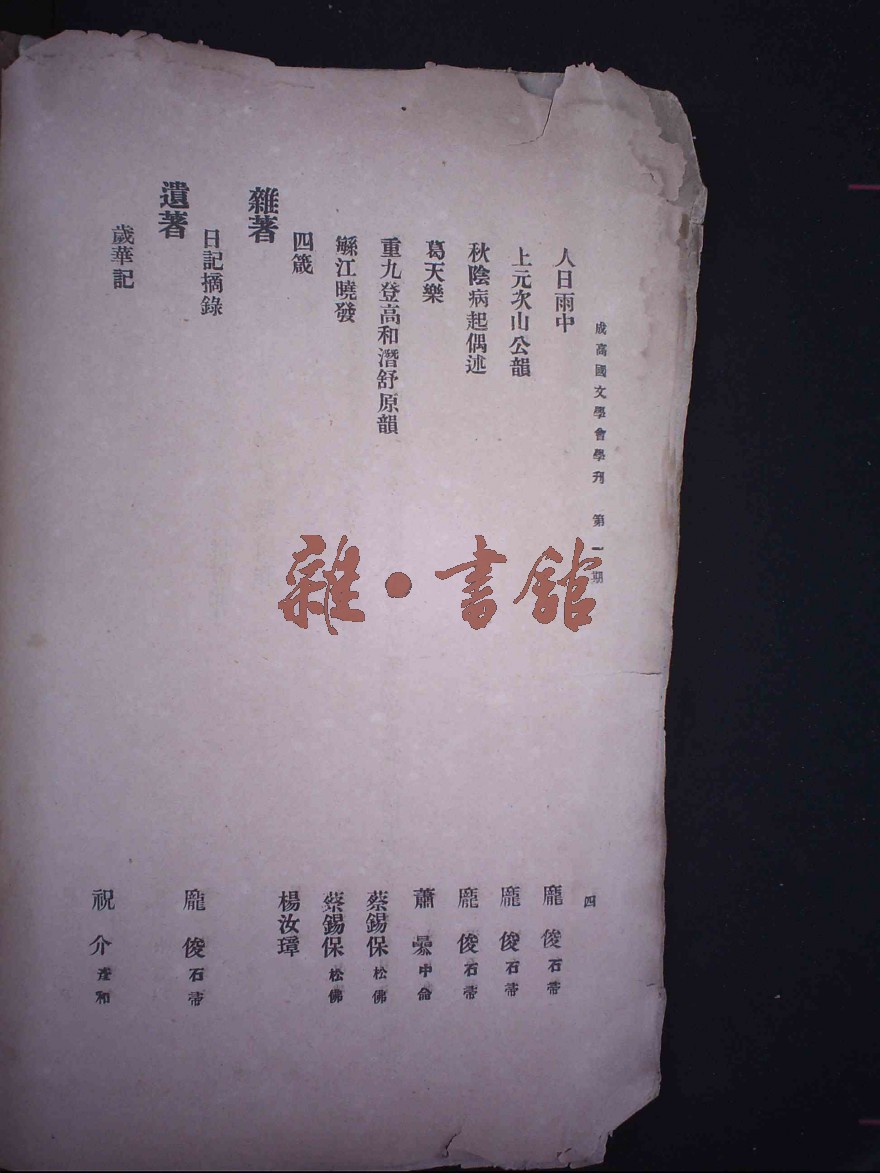 成高國文學會學刊 第一期 四
人日雨中 龐俊石帚
上元次山公韻 龐俊石帚
秋陰病起偶述 龐俊石帚
葛天樂 蕭 中侖
重九登高和潛舒原韻 蔡錫保松佛
緜江曉發 蔡錫保松佛
四箴 楊汝璋
雜著
日記摘錄 龐俊石帚
遺著
歲華記 祝介 和
雜·書館